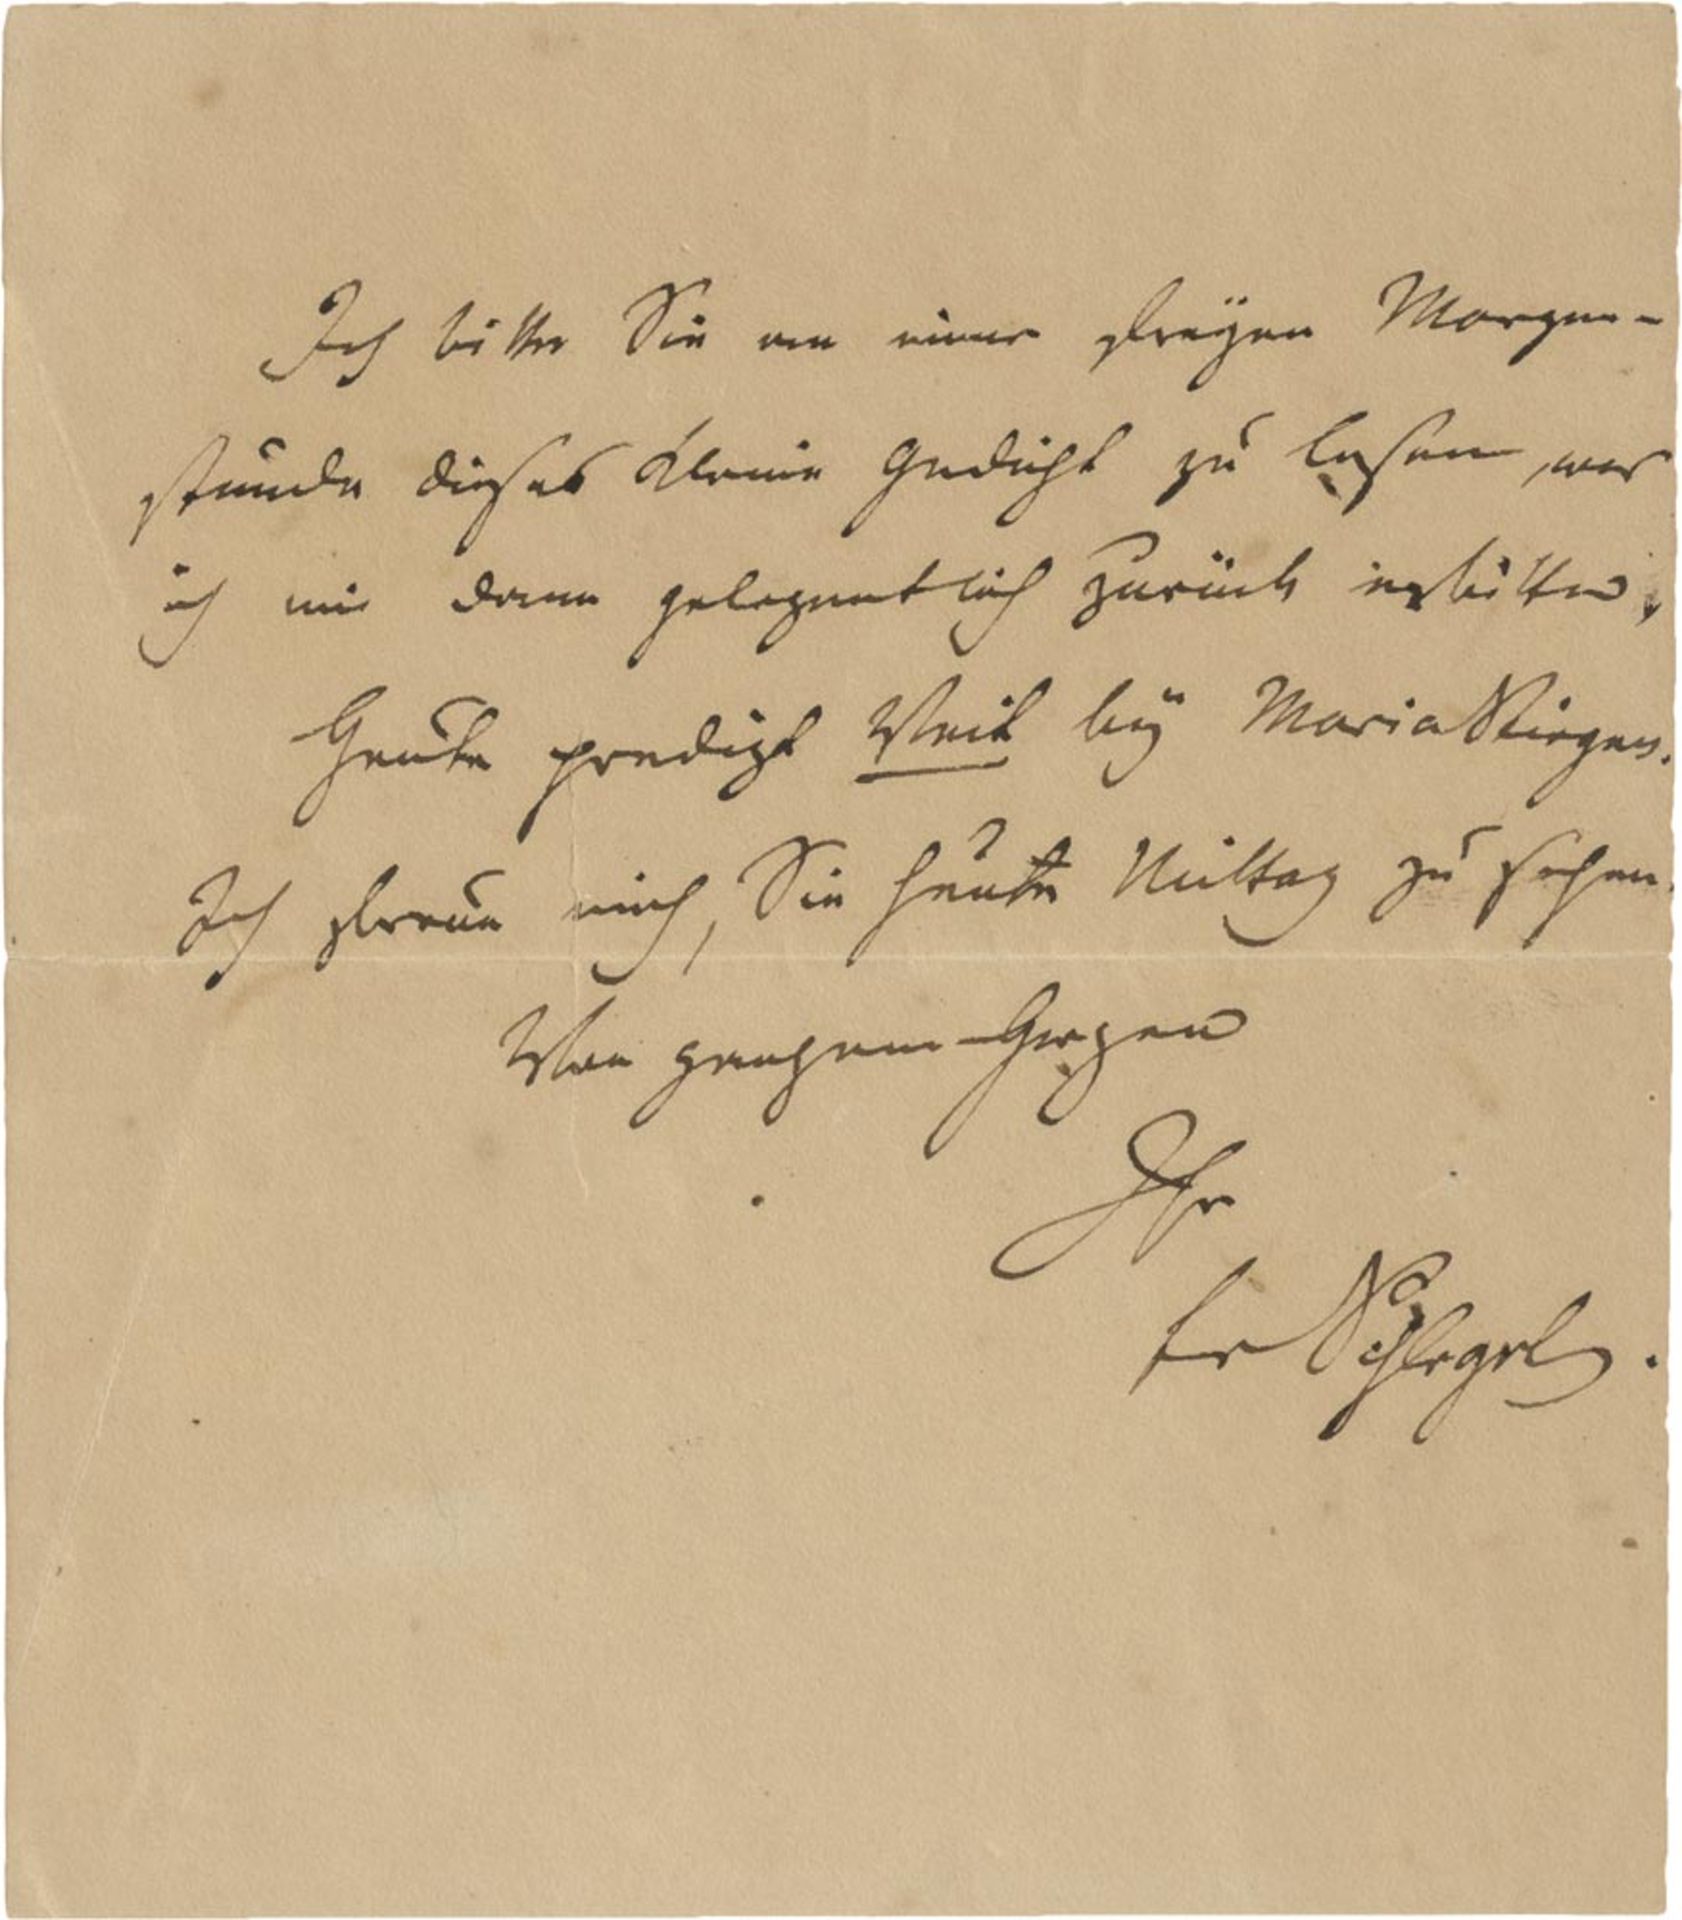 Ich bitte Sie in einer freyen Morgen-
stunde dieses kleine Gedicht zu lesen, was
ich mir dann gelegentlich zurück erbitte.
Heute predigt Veit bey Maria Stiegen.
Ich freue mich, Sie heute Mittag zu sehen.
Von ganzem Herzen
Ihr
Fr Schlegel.